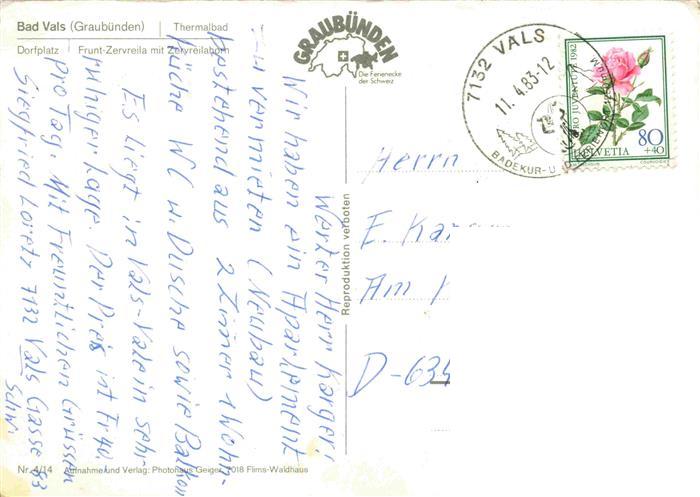 Bad Vals (Graubünden) | Thermalbad
Dorfplatz | Frunt-Zervreila mit Zervreilahorn
GRAUBÜNDEN
Die Ferienecke
der Schweiz
7132 VALS
11.4.83-12
BADEKUR- U
PRO JUVENTUTE 1982
80
+40
HELVETIA
COURVOISIER
Werter Herr Karger!
Wir haben ein Apartement
zu vermieten (Neubau)
bestehend aus 2 Zimer 1 Wohn-
Küche WC u Dusche sowie Balkon
Es liegt in Vals-Valé in sehr
ruhiger Lage. Der Preis ist Fr 40.
pro Tag. Mit Freuntlichen Grüssen
Siegfried Loretz 7132 Vals Gasse 83
Schw.
Herrn
E. Kar
Am
D-634
Reproduktion verboten
Nr. 4/14 Aufnahme und Verlag: Photohaus Geiger, 7018 Flims-Waldhaus